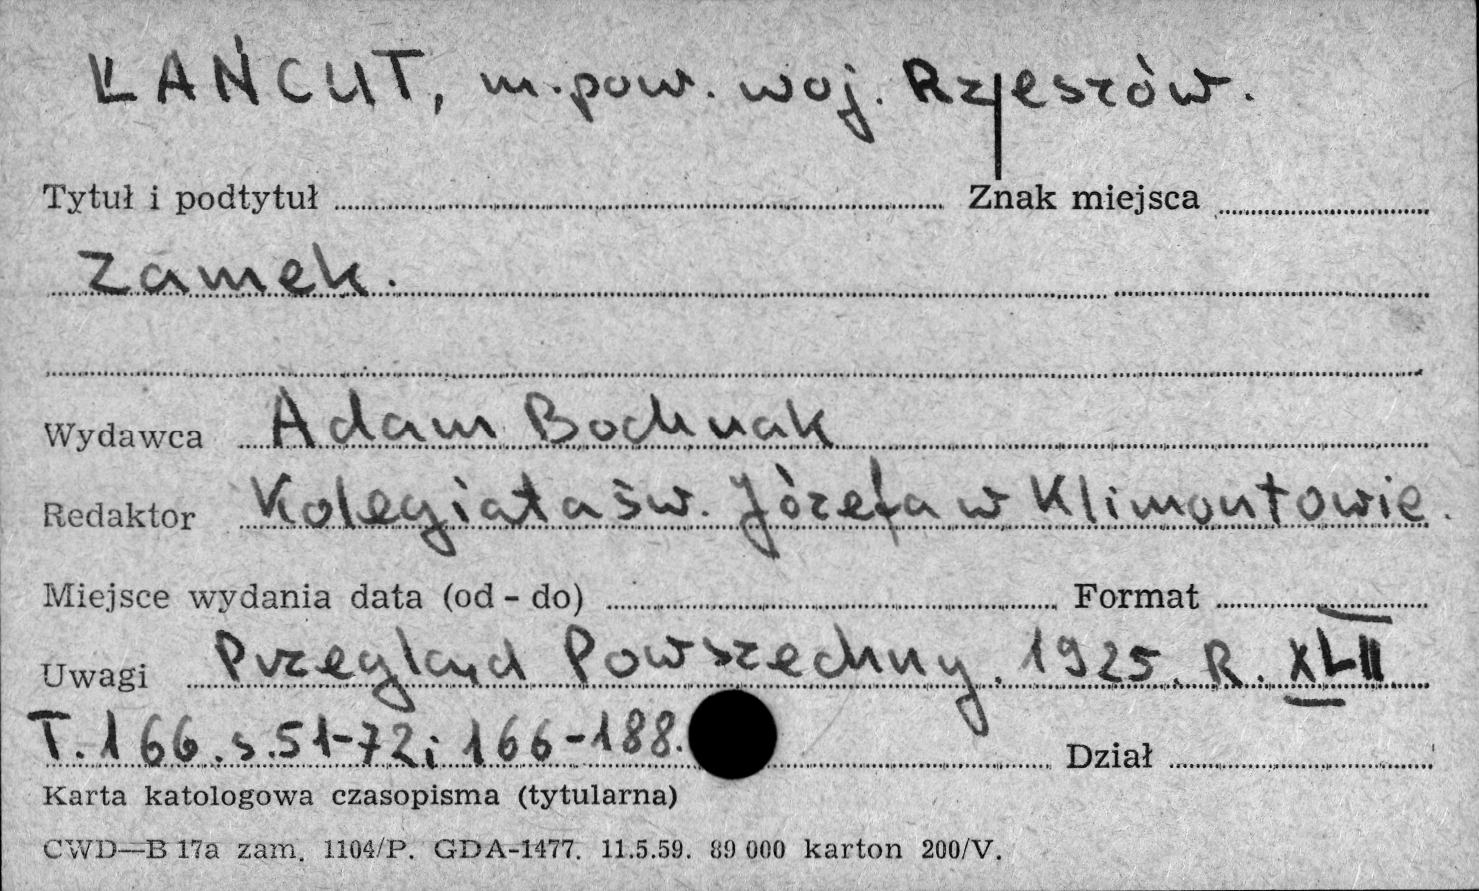 ŁAŃCUT, m.pow. woj. Rzeszów.
Tytuł i podtytuł Znak miejsca
Zamek.
Wydawca Adam Bochnak
Redaktor Kolegiata św. Józefa w Klimontowie.
Miejsce wydania data (od - do) Format
Uwagi Przegląd Powszechny. 1925. R. XLII
T. 166. s. 51-72 i 166-188.
Dział
Karta katologowa czasopisma (tytularna)
CWD—B 17a zam. 1104/P. GDA-1477. 11.5.59. 89 000 karton 200/V.